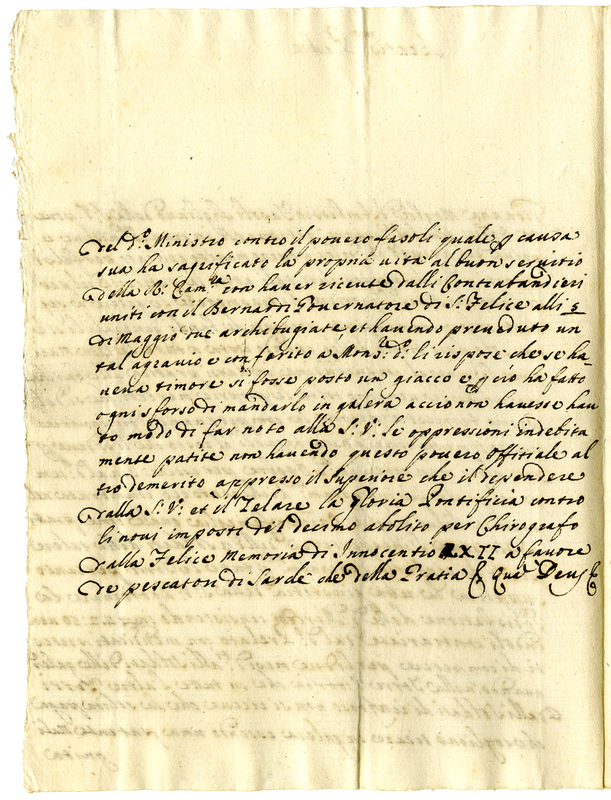 del d.º Ministro contro il povero fasoli quale p causa
sua ha sagrificato la propria vita al buon servitio
della R. Cam.ra con haver ricevute dalli Contrabandieri
uniti con il Bernardi Governatore di S. Felice alli 5
di Maggio due archibugiate, et havendo preveduto un
tal agravio e conferito à Mons.r d.º li rispose che se ha-
veva timore si fosse posto un giacco e p ciò ha fatto
ogni sforso di mandarlo in galera accio non havesse hau
to modo di far noto alla S. V. le oppressioni indebita
mente patite non havendo questo povero offitiale al
tro demerito appresso il superiore che il dependere
dalla S. V. et il Zelare la gloria Pontificia contro
li novi imposti del decimo abolito per Chirografo
dalla Felice Memoria di Innocentio XII a favore
de pescatori di Sarde che della Gratia &. Quā Deus &.